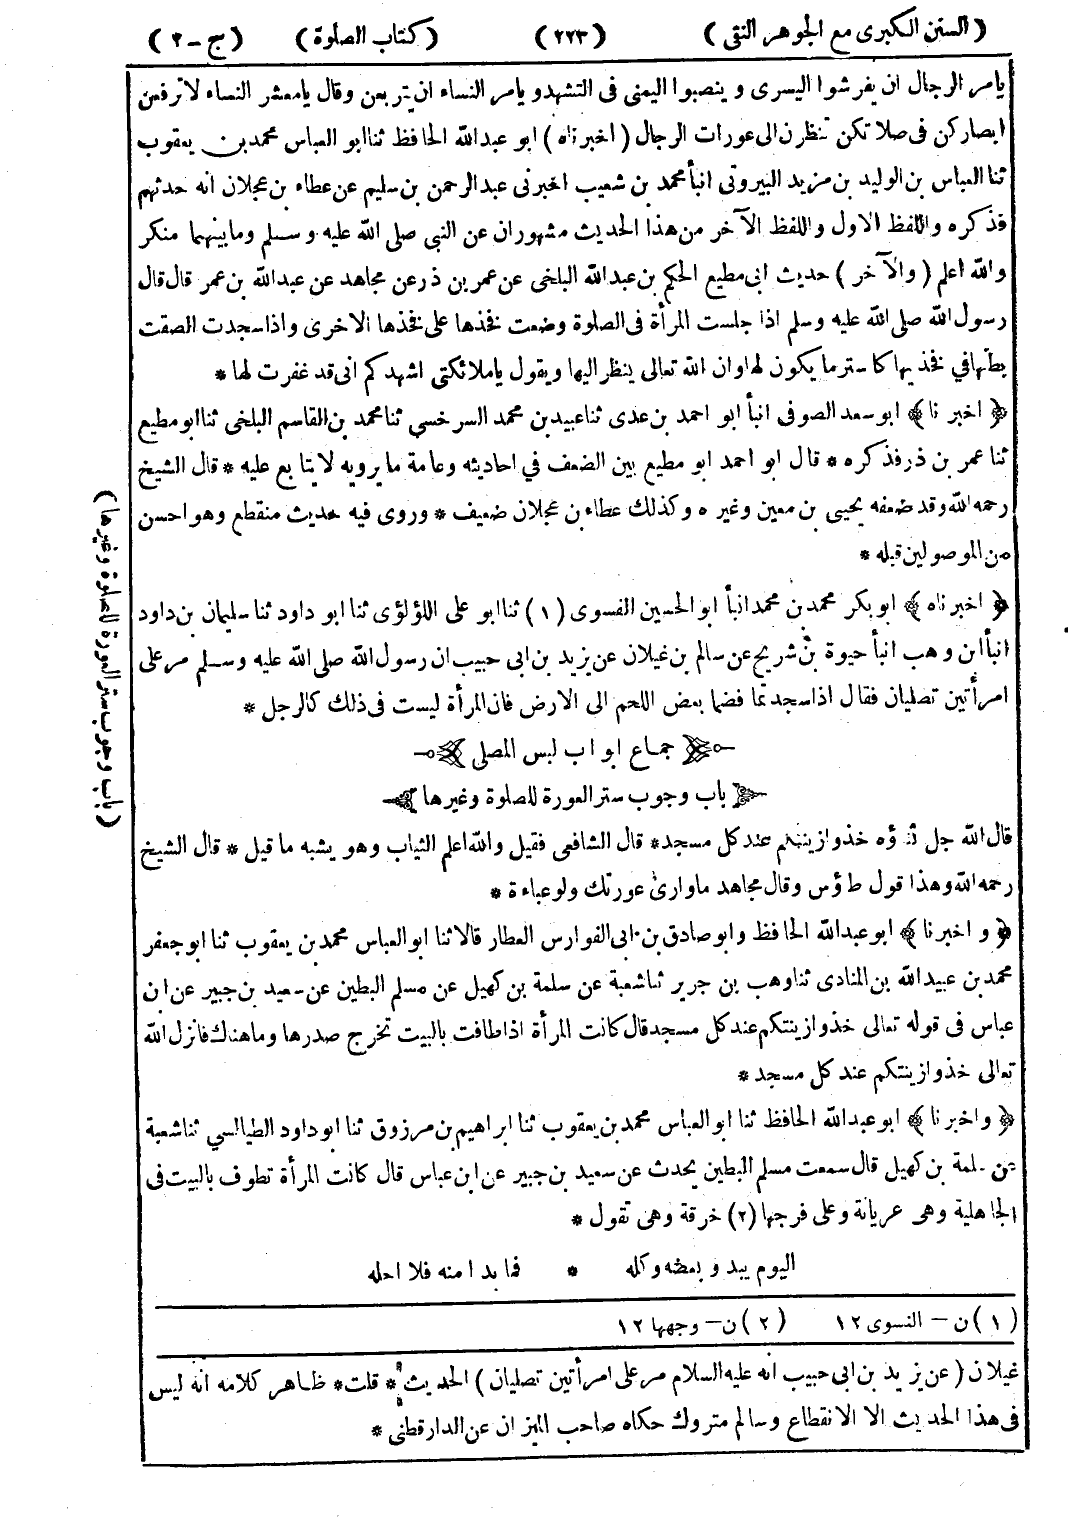 ( السنن الكبرى مع الجوهر النقى ) ( ٢٢٣ ) ( كتاب الصلوة ) ( ج - ٢ )
يامر الرجال ان يفرشوا اليسرى وينصبوا اليمنى فى التشهد ويامر النساء ان يتربعن وقال يامعشر النساء لاترفعن
ابصاركن فى صلاتكن تنظرن الى عورات الرجال ( اخبرناه ) ابو عبدالله الحافظ ثنا ابو العباس محمد بن يعقوب
ثنا العباس بن الوليد بن مزيد البيروتى انبأ محمد بن شعيب اخبرنى عبدالرحمن بن سليم عن عطاء بن عجلان انه حدثهم
فذكره واللفظ الاول واللفظ الآخر من هذا الحديث مشهوران عن النبى صلى الله عليه وسلم ومابينهما منكر
والله اعلم ( والآخر ) حديث ابى مطيع الحكم بن عبدالله البلخى عن عمر بن ذر عن مجاهد عن عبدالله بن عمر قال قال
رسول الله صلى الله عليه وسلم اذا جلست المرأة فى الصلوة وضعت فخذها على فخذها الاخرى واذا سجدت الصقت
بطنها فى فخذيها كاستر مايكون لها وان الله تعالى ينظر اليها ويقول ياملائكتى اشهدكم انى قد غفرت لها *
﴿ اخبرنا ﴾ ابو سعد الصوفى انبأ ابو احمد بن عدى ثنا عبيد بن محمد السرخسي ثنا محمد بن القاسم البلخى ثنا ابو مطيع
ثنا عمر بن ذر فذكره * قال ابو احمد ابو مطيع بين الضعف في احاديثه وعامة مايرويه لايتابع عليه * قال الشيخ
رحمه الله وقد ضعفه يحيى بن معين وغيره وكذلك عطاء بن عجلان ضعيف * وروى فيه حديث منقطع وهو احسن
من الموصولين قبله *
﴿ اخبرناه ﴾ ابوبكر محمد بن محمد انبأ ابو الحسين الفسوى (١) ثنا ابو على اللؤلؤى ثنا ابو داود ثنا سليمان بن داود
انبأ ابن وهب انبأ حيوة بن شريح عن سالم بن غيلان عن يزيد بن ابى حبيب ان رسول الله صلى الله عليه وسلم مر على
امرأتين تصليان فقال اذا سجدتما فضما بعض اللحم الى الارض فان المرأة ليست فى ذلك كالرجل *
جماع ابواب لبس المصلى
باب وجوب ستر العورة للصلوة وغيرها
قال الله جل ثناؤه خذوا زينتكم عند كل مسجد * قال الشافعى فقيل والله اعلم الثياب وهو يشبه ماقيل * قال الشيخ
رحمه الله وهذا قول طاؤس وقال مجاهد ماوارى عورتك ولو عباءة *
﴿ و اخبرنا ﴾ ابو عبدالله الحافظ وابو صادق بن ابى الفوارس العطار قالا ثنا ابو العباس محمد بن يعقوب ثنا ابو جعفر
محمد بن عبيد الله بن المنادى ثنا وهب بن جرير ثنا شعبة عن سلمة بن كهيل عن مسلم البطين عن سعيد بن جبير عن ابن
عباس فى قوله تعالى خذوا زينتكم عند كل مسجد قال كانت المرأة اذا طافت بالبيت تخرج صدرها وماهنالك فانزل الله
تعالى خذوا زينتكم عند كل مسجد *
﴿ واخبرنا ﴾ ابو عبدالله الحافظ ثنا ابو العباس محمد بن يعقوب ثنا ابراهيم بن مرزوق ثنا ابوداود الطيالسي ثنا شعبة
عن سلمة بن كهيل قال سمعت مسلم البطين يحدث عن سعيد بن جبير عن ابن عباس قال كانت المرأة تطوف بالبيت فى
الجاهلية وهى عريانة وعلى فرجها (٢) خرقة وهى تقول *
اليوم يبدو بعضه وكله * فما بدا منه فلا احله
( ١ ) ن – النسوى ١٢ ( ٢ ) ن – وجهها ١٢
غيلان ( عن يزيد بن ابى حبيب انه عليه السلام مر على امرأتين تصليان ) الحديث * قلت * ظاهر كلامه انه ليس
فى هذا الحديث الا الانقطاع وسالم متروك حكاه صاحب الميزان عن الدارقطنى *
( باب وجوب ستر العورة للصلوة وغيرها )